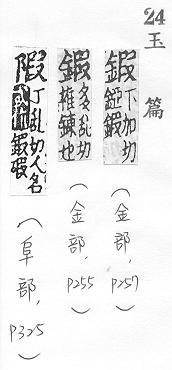 24
玉篇
鍜 下加切
錏鍜
(金部, p257)
鍛 多乱切
椎鍊也
(金部, p255)
丁乱切人名
(阜部, p325)